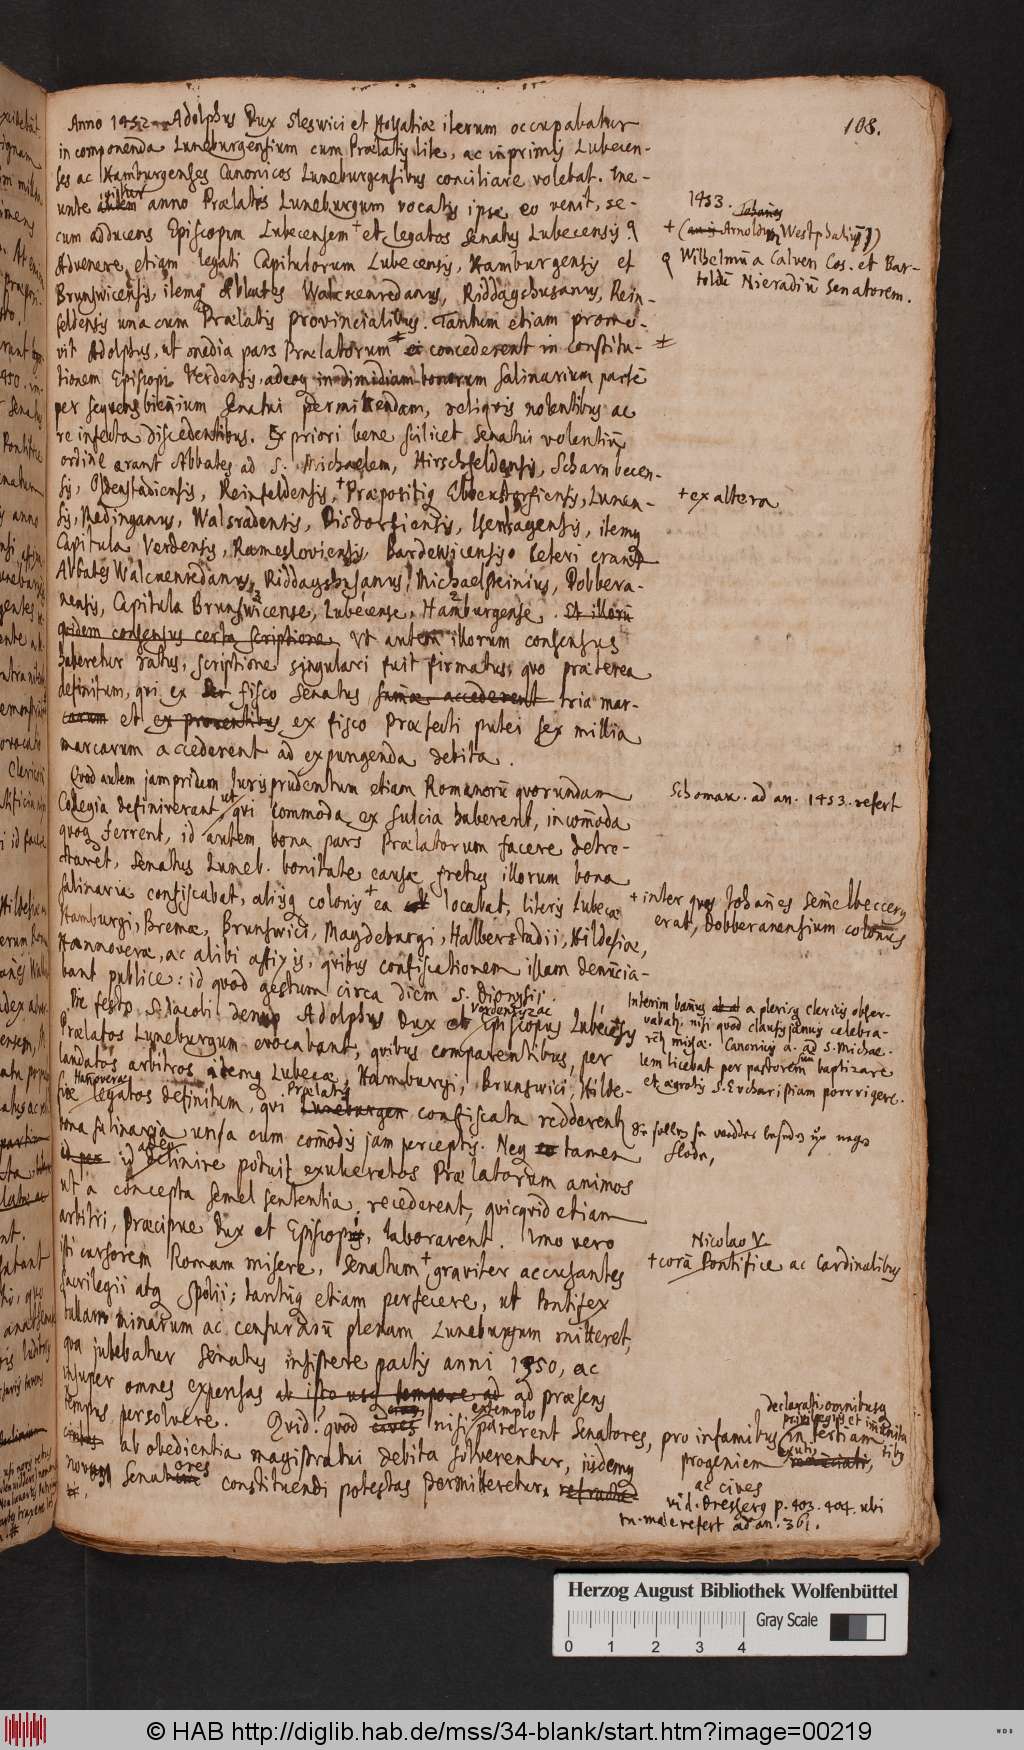 108.
Anno 1452 Adolphus Dux Sleswici et Holsatiæ iterum occupabatur
in componenda Luneburgensium cum Prælatis lite, ac inprimis Lubecen-
ses ac Hamburgenses Canonicos Luneburgensibus conciliare volebat. Ine-
unte autem anno Prælatis Luneburgum vocatis ipse eo venit, se-
cum adducens Episcopum Lubecensem et legatos Senatus Lubecensis
Advenere etiam legati Capitulorum Lubecensis, Hamburgensis et
Brunswicensis, itemq Abbates Walckenredanus, Riddagshusanus, Rein-
feldensis una cum Prælatis provincialibus. Tantum etiam promo-
vit Adolphus, ut media pars Prælatorum concederent in constitu-
tionem Episcopi Verdensis, adeoq in dimidiam bonorum salinarium parte
per sequens biennium Senatui permittendam, reliquis nolentibus ac
re infecta discedentibus. Ex priori bene scilicet Senatui volentiu
ordine erant Abbates ad S. Michaelem, Hirschfeldensis, Scharnbecen-
sis, Oldenstadiensis, Reinfeldensis, + Præpositiq Ebbekstorfiensis, Lunen-
sis, Medinganus, Walsradensis, Disdorfiensis, Isenhagensis, itemq
Capitula Verdensis, Ramesloviensis, Bardewicensis. Ceteri erant
Abbates Walckenredanus, Riddagshusanus, Michaelsteinius, Dobbera-
nensis, Capitula Brunswicense, Lubecense, Hamburgense. Et illoru
quidem consensus certa scriptione Ut autem illorum consensus
haberetur ratus, scriptione singulari fuit firmatus, quo præterea
definitum, qui ex fisco Senatus summæ accederent tria mar-
carum et ex proventibus ex fisco Præfecti putei sex millia
marcarum accederent ad expungenda debita.
Quod autem jampridem Jurisprudentum etiam Romanoru quorundam
Collegia definiverant, ut qui commoda ex sulcia haberent, incomoda
quoq ferrent, id autem bona pars Prælatorum facere detre-
ctaret, Senatus Luneb. bonitate causæ fretus illorum bona
salinaria confiscabat, aliisq colonis + ea locabat, literis Lubecæ
Hamburgi, Bremæ, Brunswici, Magdeburgi, Halberstadii, Hildesiæ,
Hannoveræ, ac alibi affixis, quibus confiscationem illam denuncia-
bant publice: id quod gestum circa diem S. Dionysii.
Die festo S. Jacobi denuo Adolphus Dux et Verdensis ac Episcopus Lubecensis
Prælatos Luneburgum evocabant, quibus comparentibus, per
laudatos arbitros itemq Lubecæ, Hamburgi, Brunswici, Hilde-
siæ Hannoveræ legatos definitum, qui Prælatis Luneburgen confiscata redderent
bona salinaria unsa cum comodis jam perceptis. Neq eo tamen
id per id adeo definire potuit exulceratos Prælatorum animos
ut a concepta semel sententia recederent, quicquid etiam
arbitri, Præcipue Dux et Episcopus, laborarent. Imo vero
isti cursorem Romam misere, Senatum + graviter accusantes
sacrilegii atq spolii; tantuq etiam perfecere, ut Pontifex
bullam minarum ac censuraru plenam Luneburgum mitteret,
qua jubebatur Senatus insistere pactis anni 1450, ac
insuper omnes expensas ab isto usq tempore ad ad præsens
tempus persolvere. Quid? quod cives nisi extemplo parerent Senatores, pro infamibus in tertiam
ab obedientia magistratui debita solverentur, iisdemq
novum Senatores constituendi potestas permitteretur.
1453.
Johanes
+ (Arnoldum Westphaliu))
Wilhelmu a Calven Cos. et Bar-
toldu Nieradiu Senatorem.
+ ex altera
Schomak. ad an. 1453. refert
+ inter quos Johanes Semelbeccerg
erat, Dobberanensium colonus
Interim banus a plerisq clericis obser-
vabat. nisi quod clausis januis celebra-
rēt missæ. Canonicis a. ad S. Michae-
lem licebat per pastorem suu baptizare
et ægrotis S. Eucharistiam porrigere.
Nicolao V
+ corā Pontifice ac Cardinalibus
declarati omnibusq
privilegiis et imunita
tibus
progeniem exuti,
ac cives
vid. Dresserg p. 403. 404. ubi
tn. male refert ad an. 361.
Herzog August Bibliothek Wolfenbüttel
Gray Scale
0 1 2 3 4
© HAB http://diglib.hab.de/mss/34-blank/start.htm?image=00219